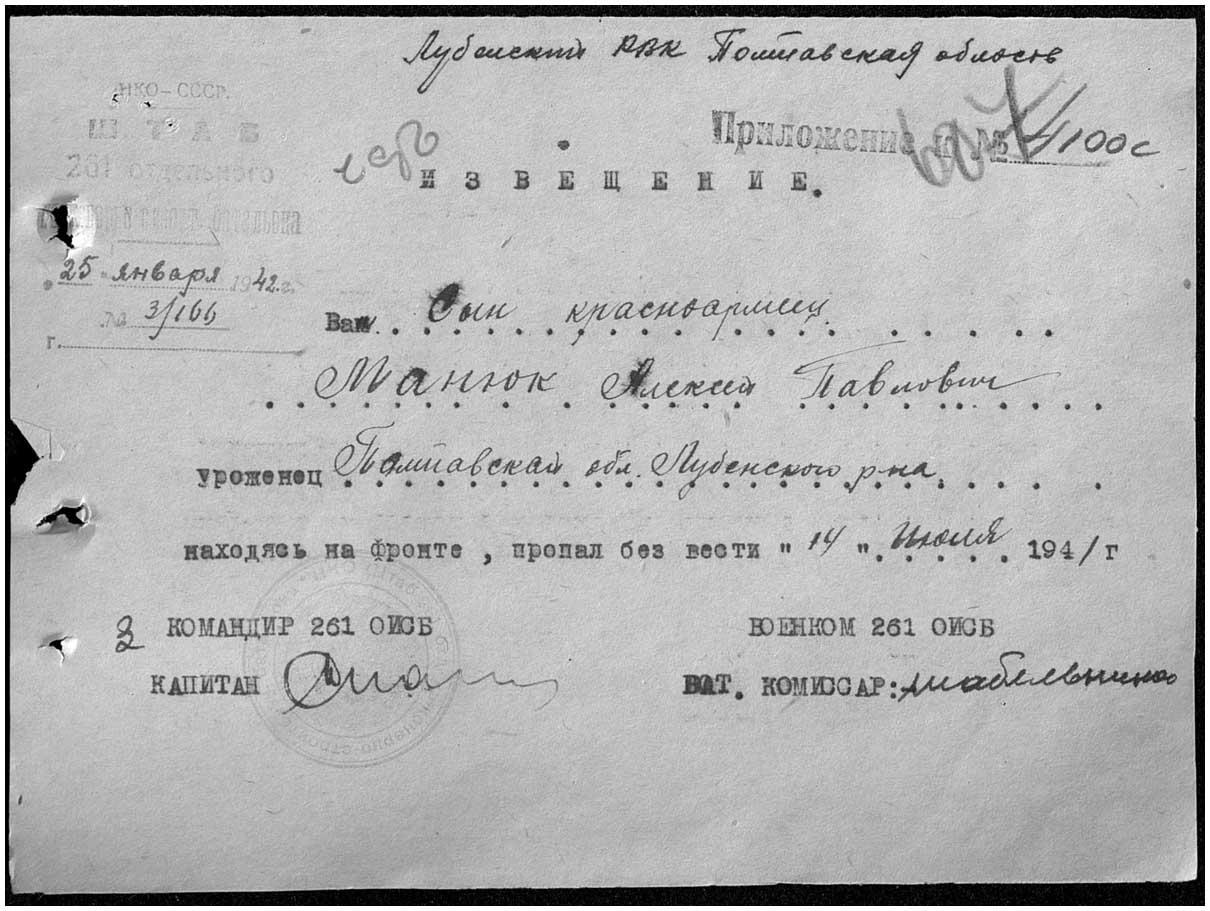 Лубенский РВК Полтавская область
НКО-СССР.
ШТАБ
261 отдельного
батальона
Приложение к № 4100с
ИЗВЕЩЕНИЕ.
"25" января 1942 г.
№ 3/166
г.
Ваш Сын красноармеец
Манюк Алексей Павлович
уроженец Полтавской обл. Лубенского р-на
находясь на фронте, пропал без вести "14" Июля 1941 г
КОМАНДИР 261 ОИСБ
ВОЕНКОМ 261 ОИСБ
КАПИТАН
БАТ. КОМИССАР: